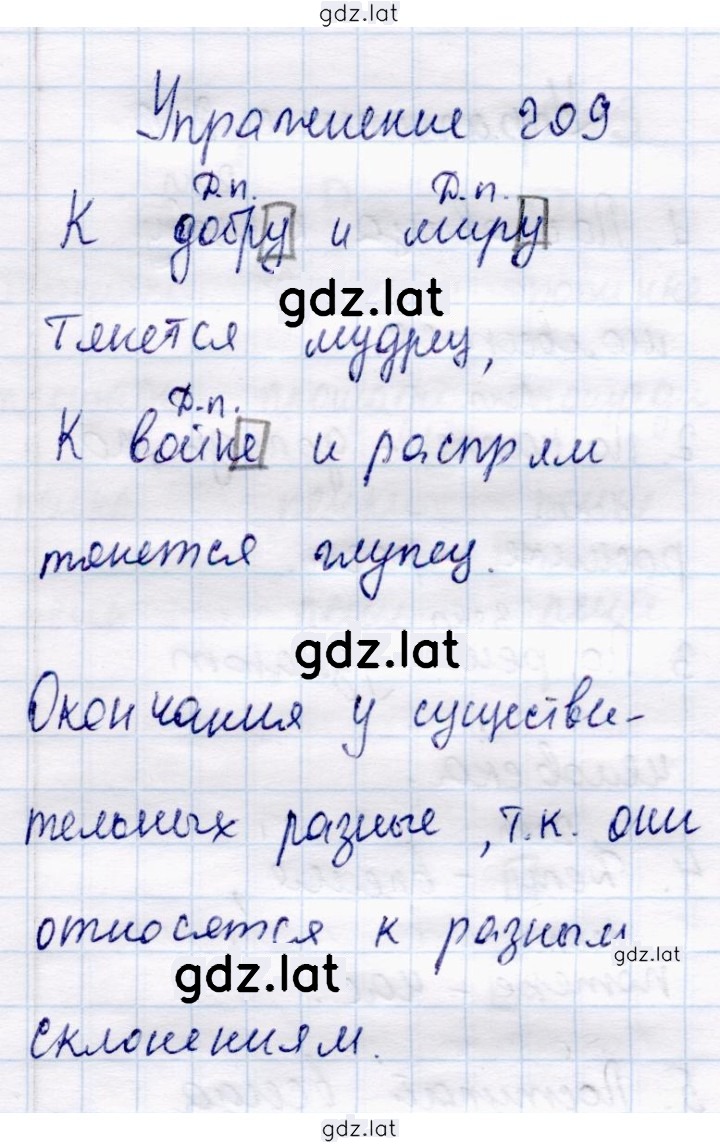 gdz.lat
Упражнение 209
Д.п. Д.п.
К добру и миру
gdz.lat
тянется мудрец,
Д.п.
К войне и распрям
тянется глупец.
gdz.lat
Окончания у существи-
тельных разные, т.к. они
относятся к разным
gdz.lat
gdz.lat
склонениям.
gdz.lat